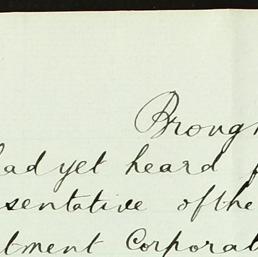 Brough
had yet heard f
sentative of the
tment Corporat